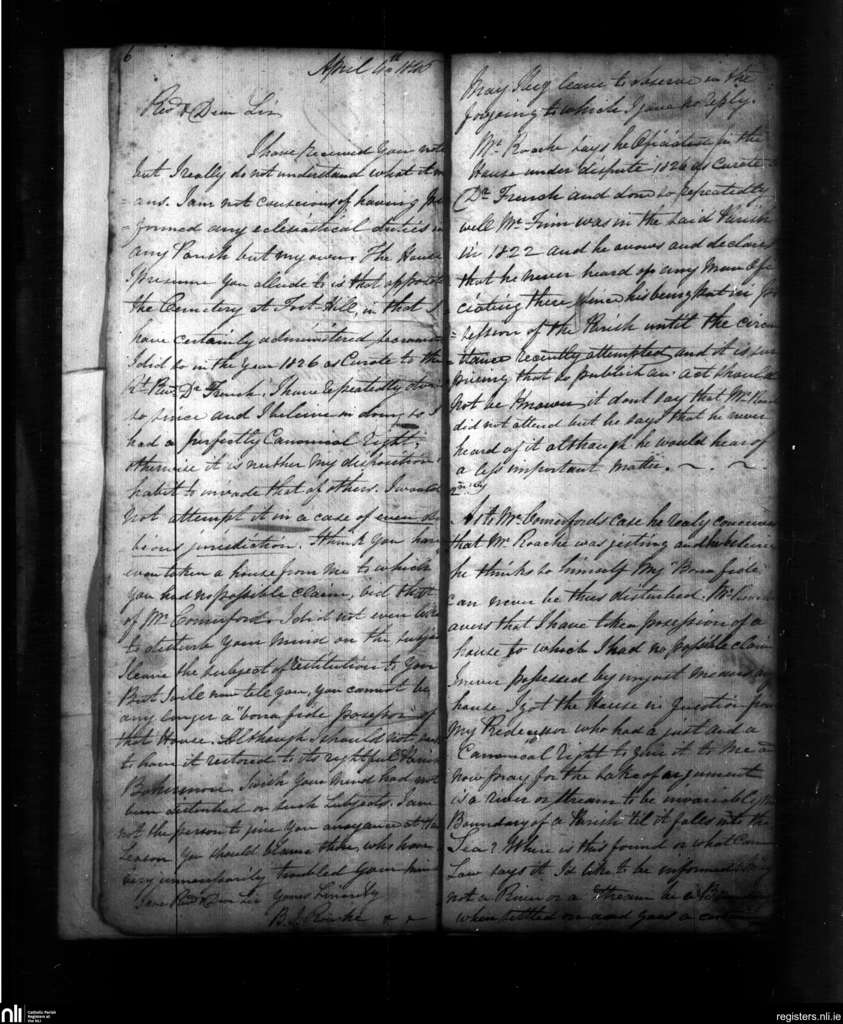 6
April 4th 18
Revd & Dear Sir
I have received your note
but I really do not understand what it me
=ans. I am not conscious of having per
=formed any eclesiastical duties in
any Parish but my own. The House
I presume you allude to is that opposite
the Cemetery at Fort-Hill, in that I
have certainly administered
I did so in the year 1826 as Curate to the
Rt. Revd. Dr French. I have repeatedly done
so since and I believe in doing so I
had a perfectly Canonical right,
otherwise it is neither my disposition
habit to invade that of others. I would
not attempt it in a case of even du
bious jurisdiction. I think you have
even taken a house from me to which
you had no possible claim, vid that
of Mr Comerford. I did not even like
to disturb your mind on the subject
I leave the subject of restitution to you
But I will now tell you, you cannot be
any longer a "bona fide possessor of
that House. Although I should not
to have it restored to its rightful Parish
Bohermore. I wish your mind had not
been disturbed on such subjects. I am
not the person to give you anoyance at this
Season you should blame those who have
very unnecessarily troubled your mind
I am Revd & Dear Sir yours Sincerely
B. J. Roache
May I beg leave to observe on the
forgoing to which I gave no reply.
Mr. Roache says he Officiated in the
House under dispute 1826 as Curate to
Dr. French and done so repeatedly
well Mr. Finn was in the said Parish
in 1822 and he avows and declares
that he never heard of any Man offi
ciating there since his being put in po
=session of the Parish until the circu
tance recently attempted and it is sur
prising that so publick an act should
not be known, it dont say that Mr.
did not attend but he says that he never
heard of it although he would hear of
a less important matter. ~ . ~ .
2ndly
As to Mr Comerfords case he realy conceives
that Mr Roache was jesting and
he thinks to himself My "Bona fide
can never be thus disturbed. Mr Roache
avers that I have taken possession of a
house to which I had no possible claim
I never possessed by unjust means any
house. I got the House in question from
my Predecessor who had a just and a
Canonical right to give it to me and
now pray for the sake of argument
is a river or stream to be invariably the
Boundary of a Parish til it falls into the
Sea? Where is this found or what Canon
Law says it I'd like to be informed
not a River or a Stream be a Boundary
when settled on and goes a certain
nli
Catholic Parish
Registers at
the NLI
registers.nli.ie